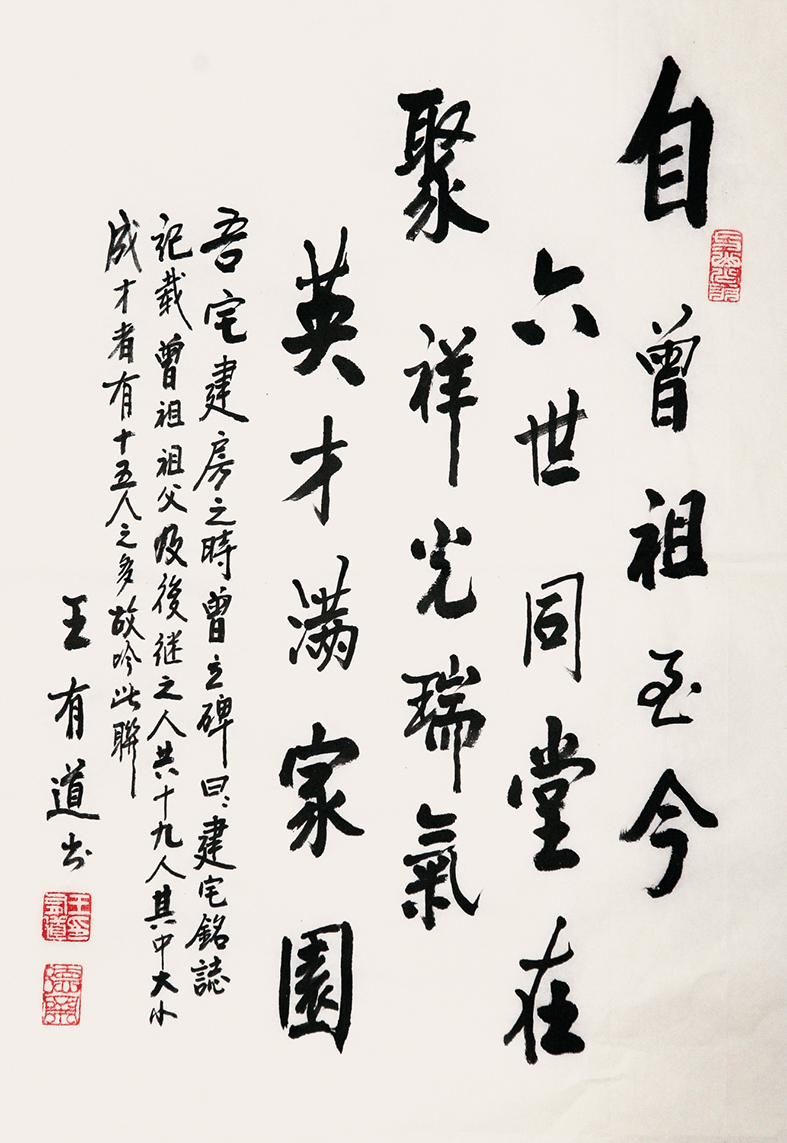 自曾祖至今
六世同堂在
聚祥光瑞氣
英才满家園
吾宅建房之時曾立碑曰：建宅銘誌
记载曾祖祖父及後继之人共十九人其中大小
成才者有十五人之多故吟此聯
王有道书